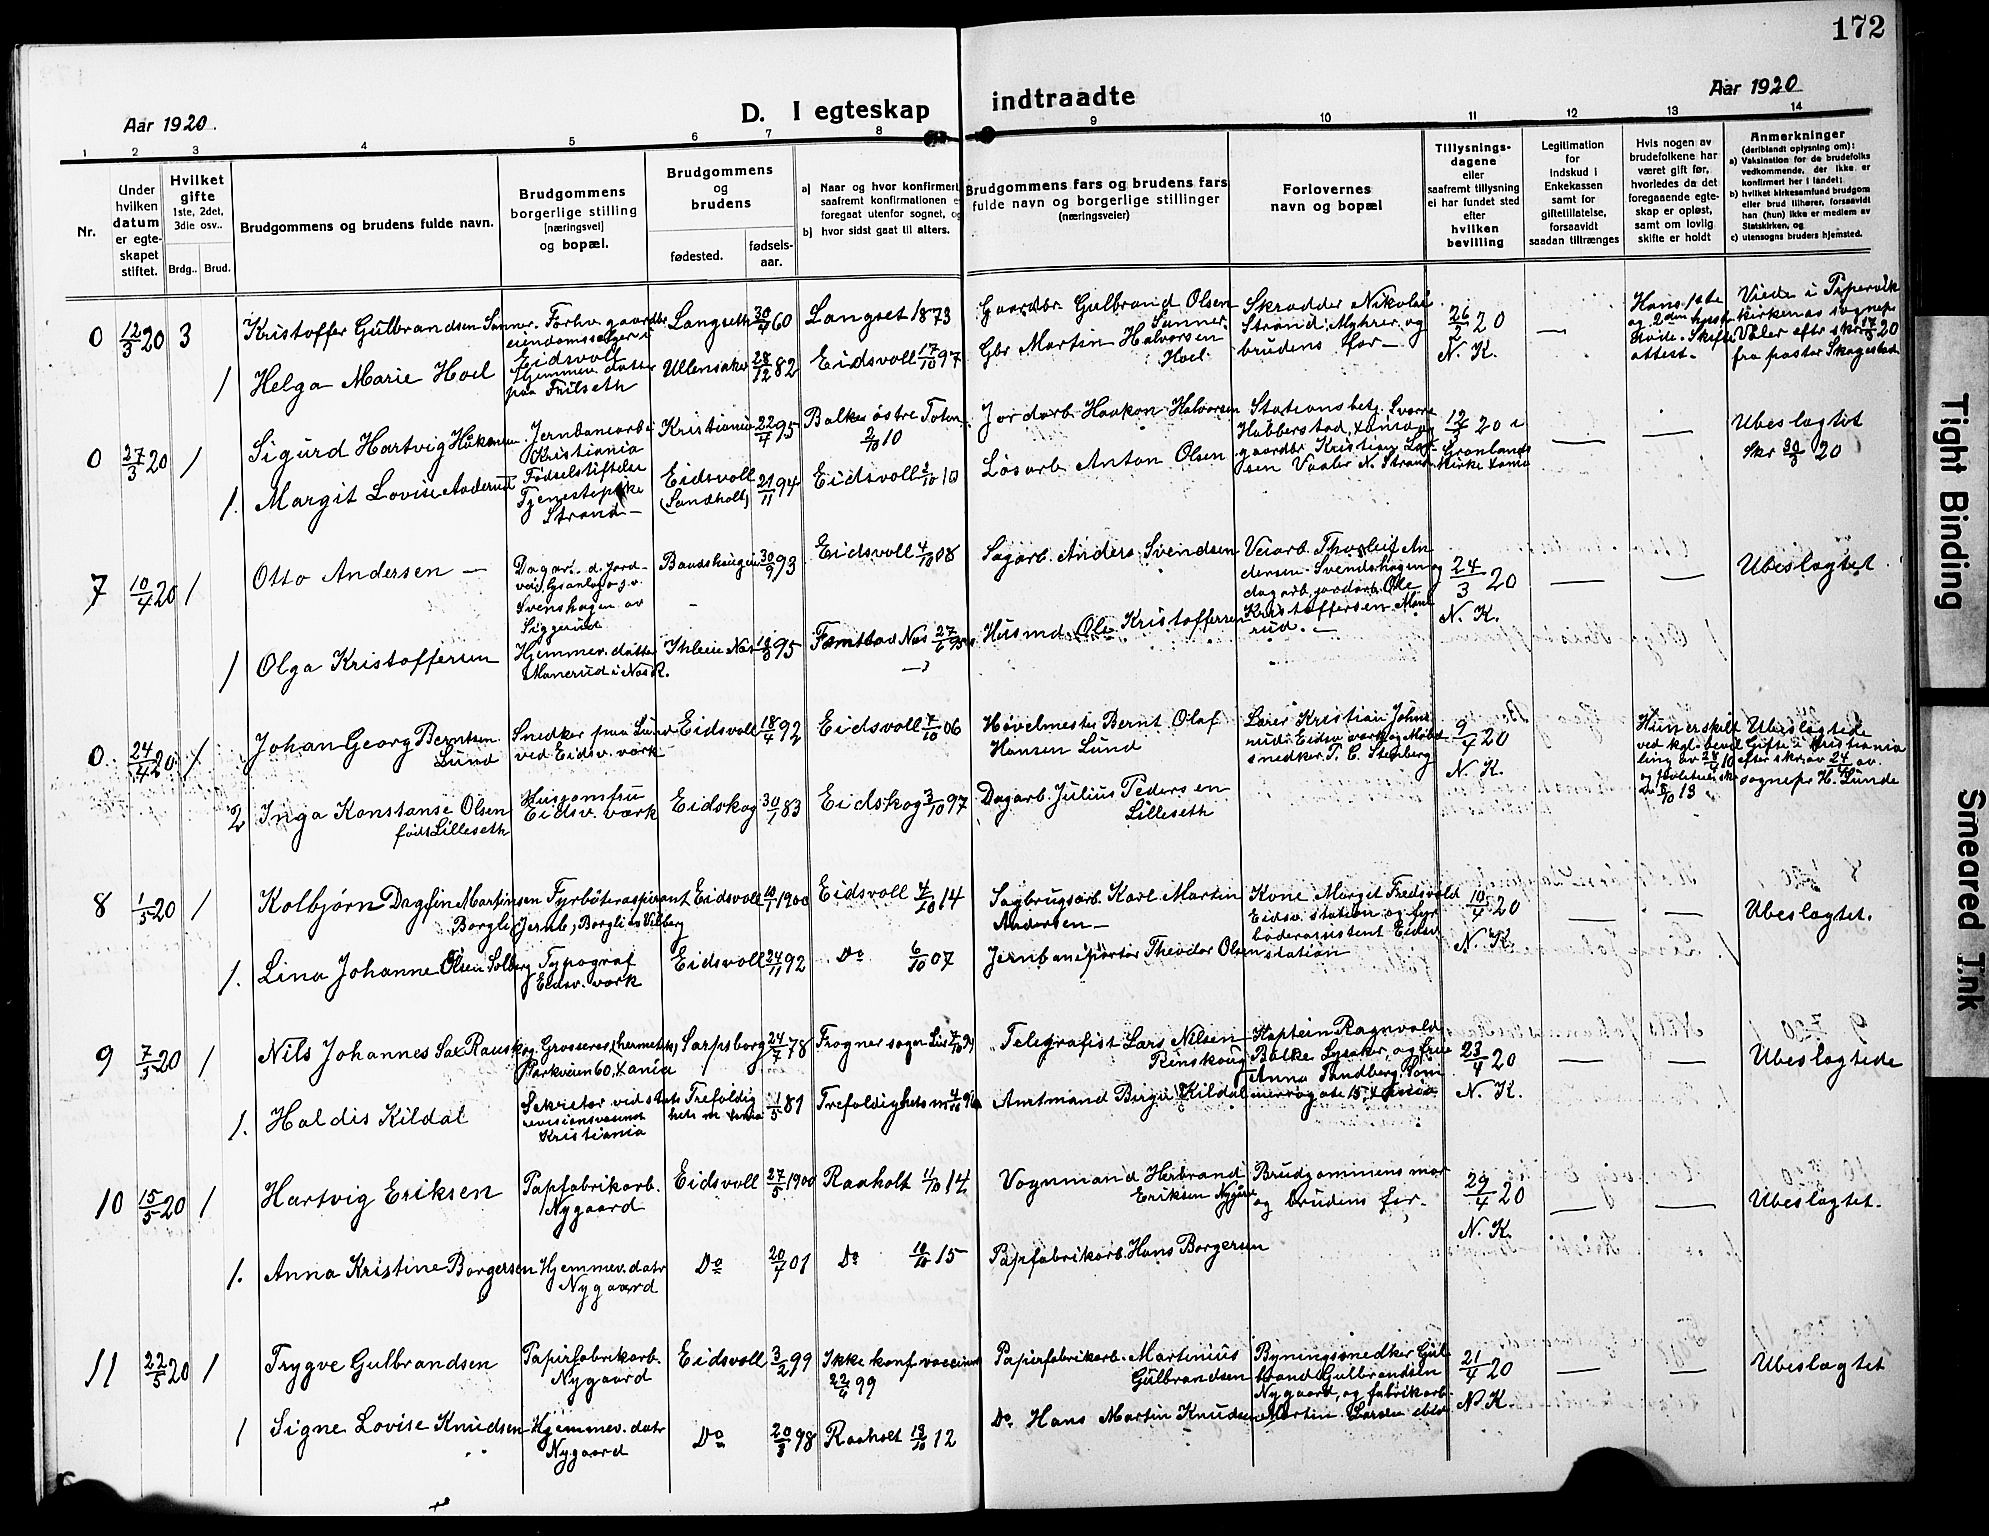 172
Aar 1920.
D. I egteskap
indtraadte
Aar 1920
1
2
3
4
5
6
7
8
9
10
11
12
13
14
Nr.
Under hvilken datum er egte-skapet stiftet.
Hvilket gifte 1ste, 2det, 3die osv..
Brdg..
Brud.
Brudgommens og brudens fulde navn.
Brudgommens borgerlige stilling [næringsvei] og bopæl.
Brudgommens og brudens
fødested.
fødsels-aar.
a) Naar og hvor konfirmert, saafremt konfirmationen er foregaat utenfor sognet, og
b) hvor sidst gaat til alters.
Brudgommens fars og brudens fars fulde navn og borgerlige stillinger (næringsveier)
Forlovernes navn og bopæl
Tillysnings-dagene eller saafremt tillysning ei har fundet sted efter hvilken bevilling
Legitimation for Indskud i Enkekassen samt for giftetillatelse, forsaavidt saadan tiltrænges
Hvis nogen av brudefolkene har været gift før, hvorledes da det foregaaende egte-skap er opløst, samt om lovlig skifte er holdt
Anmerkninger (deriblandt oplysning om):
a) Vaksination for de brudefolks vedkommende, der ikke er konfirmert her i landet;
b) hvilket kirkesamfund brudgom eller brud tilhører, forsaavidt han (hun) ikke er medlem av Statskirken, og
c) utensogns bruders hjemsted.
0 12/3 20 3 Kristoffer Gulbrandsen Sanner. Forhv. gaardbr. eiendomssælger i Eidsvoll Langseth 30/4 60 Langset 1873 Gaardbr. Gulbrand Olsen Sanner. Skrædder Nikolai Strand, Myhrer, og brudens far — 26/2 20 N. K. — Hans 1ste og 2den hustru døde. Skifte attest. Viede i Pipervik kirkenas sogne efter skr. 17/3 20 fra pastor Skagestad
1 Helga Marie Hoel Hjemmev. datter paa Fulseth Ullensaker 28/12 82 Eidsvoll 17/10 97 Gbr Martin Halvorsen Hoel.
0 27/3 20 1 Sigurd Hartvig Håkonsen. Jernbanearb. Kristiania Kristiania 22/7 95 Balke østre Toten 2/10 10 Jordarb. Haakon Halvorsen Stationsbetj. Sverre Habberstad, Xania og gaardbr. Kristian Larsen Vaaler N. Strand 12/3 20 i Grønlands kirke Xania — — Ubeslagtet Skr 30/3 20
1. Margit Lovise Anderud Fødselstiftelse Tjenestepike Strand — Eidsvoll (Sandholt) 21/11 94 Eidsvoll 2/10 10 Løsarb. Anton Olsen
7 10/4 20 1 Otto Andersen — Svenshagen av Siggerud 30/9 93 Eidsvoll 4/10 08 Sagarb. Anders Svendsen Veiarb. Thorleif Andersen Svendshagen og dagarb. jordarb. Ole Kristoffersen Mønerud. — 24/3 20 N. K. — — Ubeslagtet
1 Olga Kristoffersen Hjemmev. datter Mønerud i Nes R. Nes 95 Nes Husmd Ole Kristoffersen
0. 24/4 20 1 Johan Georg Berntsen Lund Snedker paa Lund ved Eidsv. værk Eidsvoll 18/4 92 Eidsvoll 7/10 06 Høvelmester Bernt Olaf Hansen Lund Lærer Kristian Johnsrud, Eidsv. værk og Møbelsnedker P. C. Stenberg 9/4 20 N. K. Hun er skilt ved kgl. bevilling av Ubeslagtede Gifte i Kristiania efter skr. av 24/4 av sognepr. H. Lunde
2 Inga Konstanse Olsen født Lilleseth Husjomfru Eidsv. værk Eidskog 30/1 83 Eidskog 3/10 97 Dagarb. Julius Pedersen Lilleseth
8 1/5 20 1 Kolbjørn Dagfin Martinsen Borgli Fyrbøteraspirant Jernb., Borgli Eidsvoll 10/1 1900 Eidsvoll 4/10 14 Sagbrugsarb. Karl Martin Andersen — Kone Margit Fredsvold Eidsv. station og fyrbøderassistent Eidsv station 10/4 20 N. K. — — Ubeslagtet.
1. Lina Johanne Olsen Solberg Typograf Eidsv. værk Eidsvoll 24/11 92 Do 6/10 07 Jernbaneportør Theodor Olsen
9 7/5 20 1 Nils Johannes Sax Grosserer (hermetik) Parkveien 60, Xania Sarpsborg 24/7 78 Frogner sogn Telegrafist Lars Nilsen Kaptein Ragnvald Balke Lysaker, og frue Anna Tandberg 23/4 20 N. K. — — Ubeslagtede
1. Haldis Kildal Sekretær ved stats revisionsvæsenet Kristiania Trefoldighets m Xania 1/5 81 Trefoldighets m Amtmand Birger Kildal
10 15/5 20 1 Hartvig Eriksen Papfabrikarb. Nygaard Eidsvoll 27/5 1900 Raaholt 4/10 14 Vognmand Herbrand Eriksen Nygård Brudgommens mor og brudens far. 29/4 20 N. K. — — Ubeslagtet.
1. Anna Kristine Borgersen Hjemmev. datr Nygaard Do 20/7 01 Do 10/10 15 Papfabrikarb. Hans Borgersen
11 22/5 20 1 Trygve Gulbrandsen Papirfabrikarb. Nygaard Eidsvoll 3/2 99 Ikke konf. vaccineret 22/6 99 Papirfabrikarb. Martinius Gulbrandsen Bygningssnedker Gulbrand Gulbrandsen Nygaard, og fabrikarb. Martin Larsen 21/4 20 N. K. — — Ubeslagtet
1 Signe Lovise Knudsen Hjemmev. datr Nygaard Do 20/3 98 Raaholt 13/10 12 Do. Hans Martin Knudsen
Tight Binding
Smeared Ink